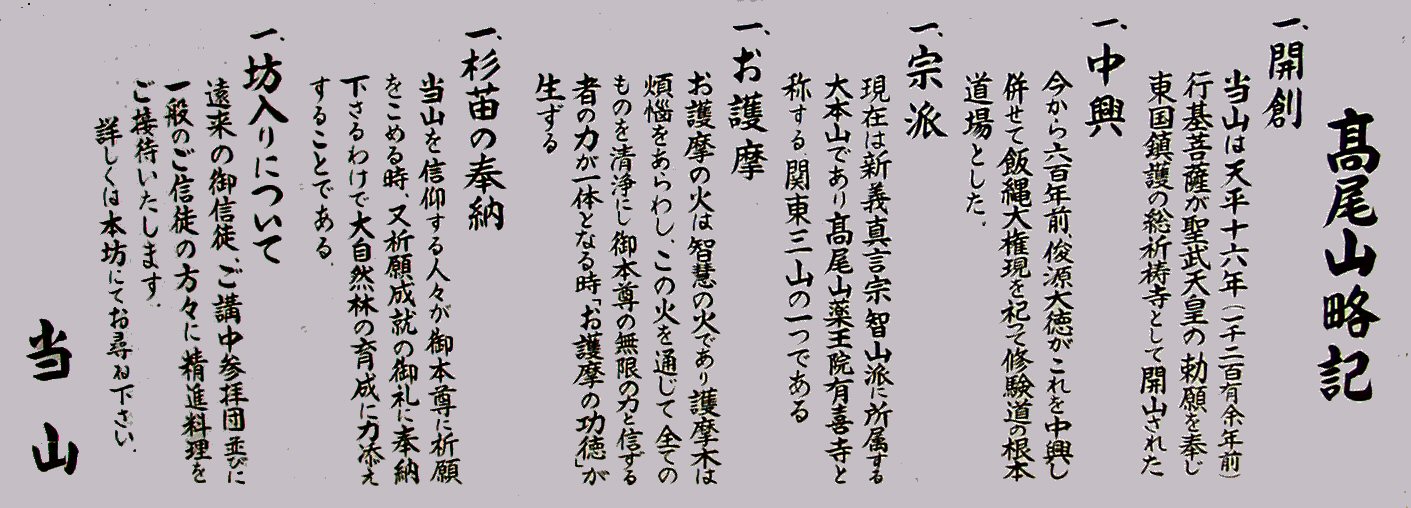 髙尾山略記
一、開創
当山は天平十六年（一千二百有余年前）
行基菩薩が聖武天皇の勅願を奉じ
東国鎮護の総祈祷寺として開山された
一、中興
今から六百年前、俊源大徳がこれを中興し
併せて飯縄大権現を祀って修験道の根本
道場とした。
一、宗派
現在は新義真言宗智山派に所属する
大本山であり髙尾山薬王院有喜寺と
称する関東三山の一つである
一、お護摩
お護摩の火は智慧の火であり護摩木は
煩悩をあらわし、この火を通じて全ての
ものを清浄にし御本尊の無限の力と信ずる
者の力が一体となる時「お護摩の功徳」が
生ずる
一、杉苗の奉納
当山を信仰する人々が御本尊に祈願
をこめる時、又祈願成就の御礼に奉納
下さるわけで大自然林の育成に力添え
することである。
一、坊入りについて
遠来の御信徒、ご講中参拝団並びに
一般のご信徒の方々に精進料理を
ご接待いたします。
詳しくは本坊にてお尋ね下さい。
当山